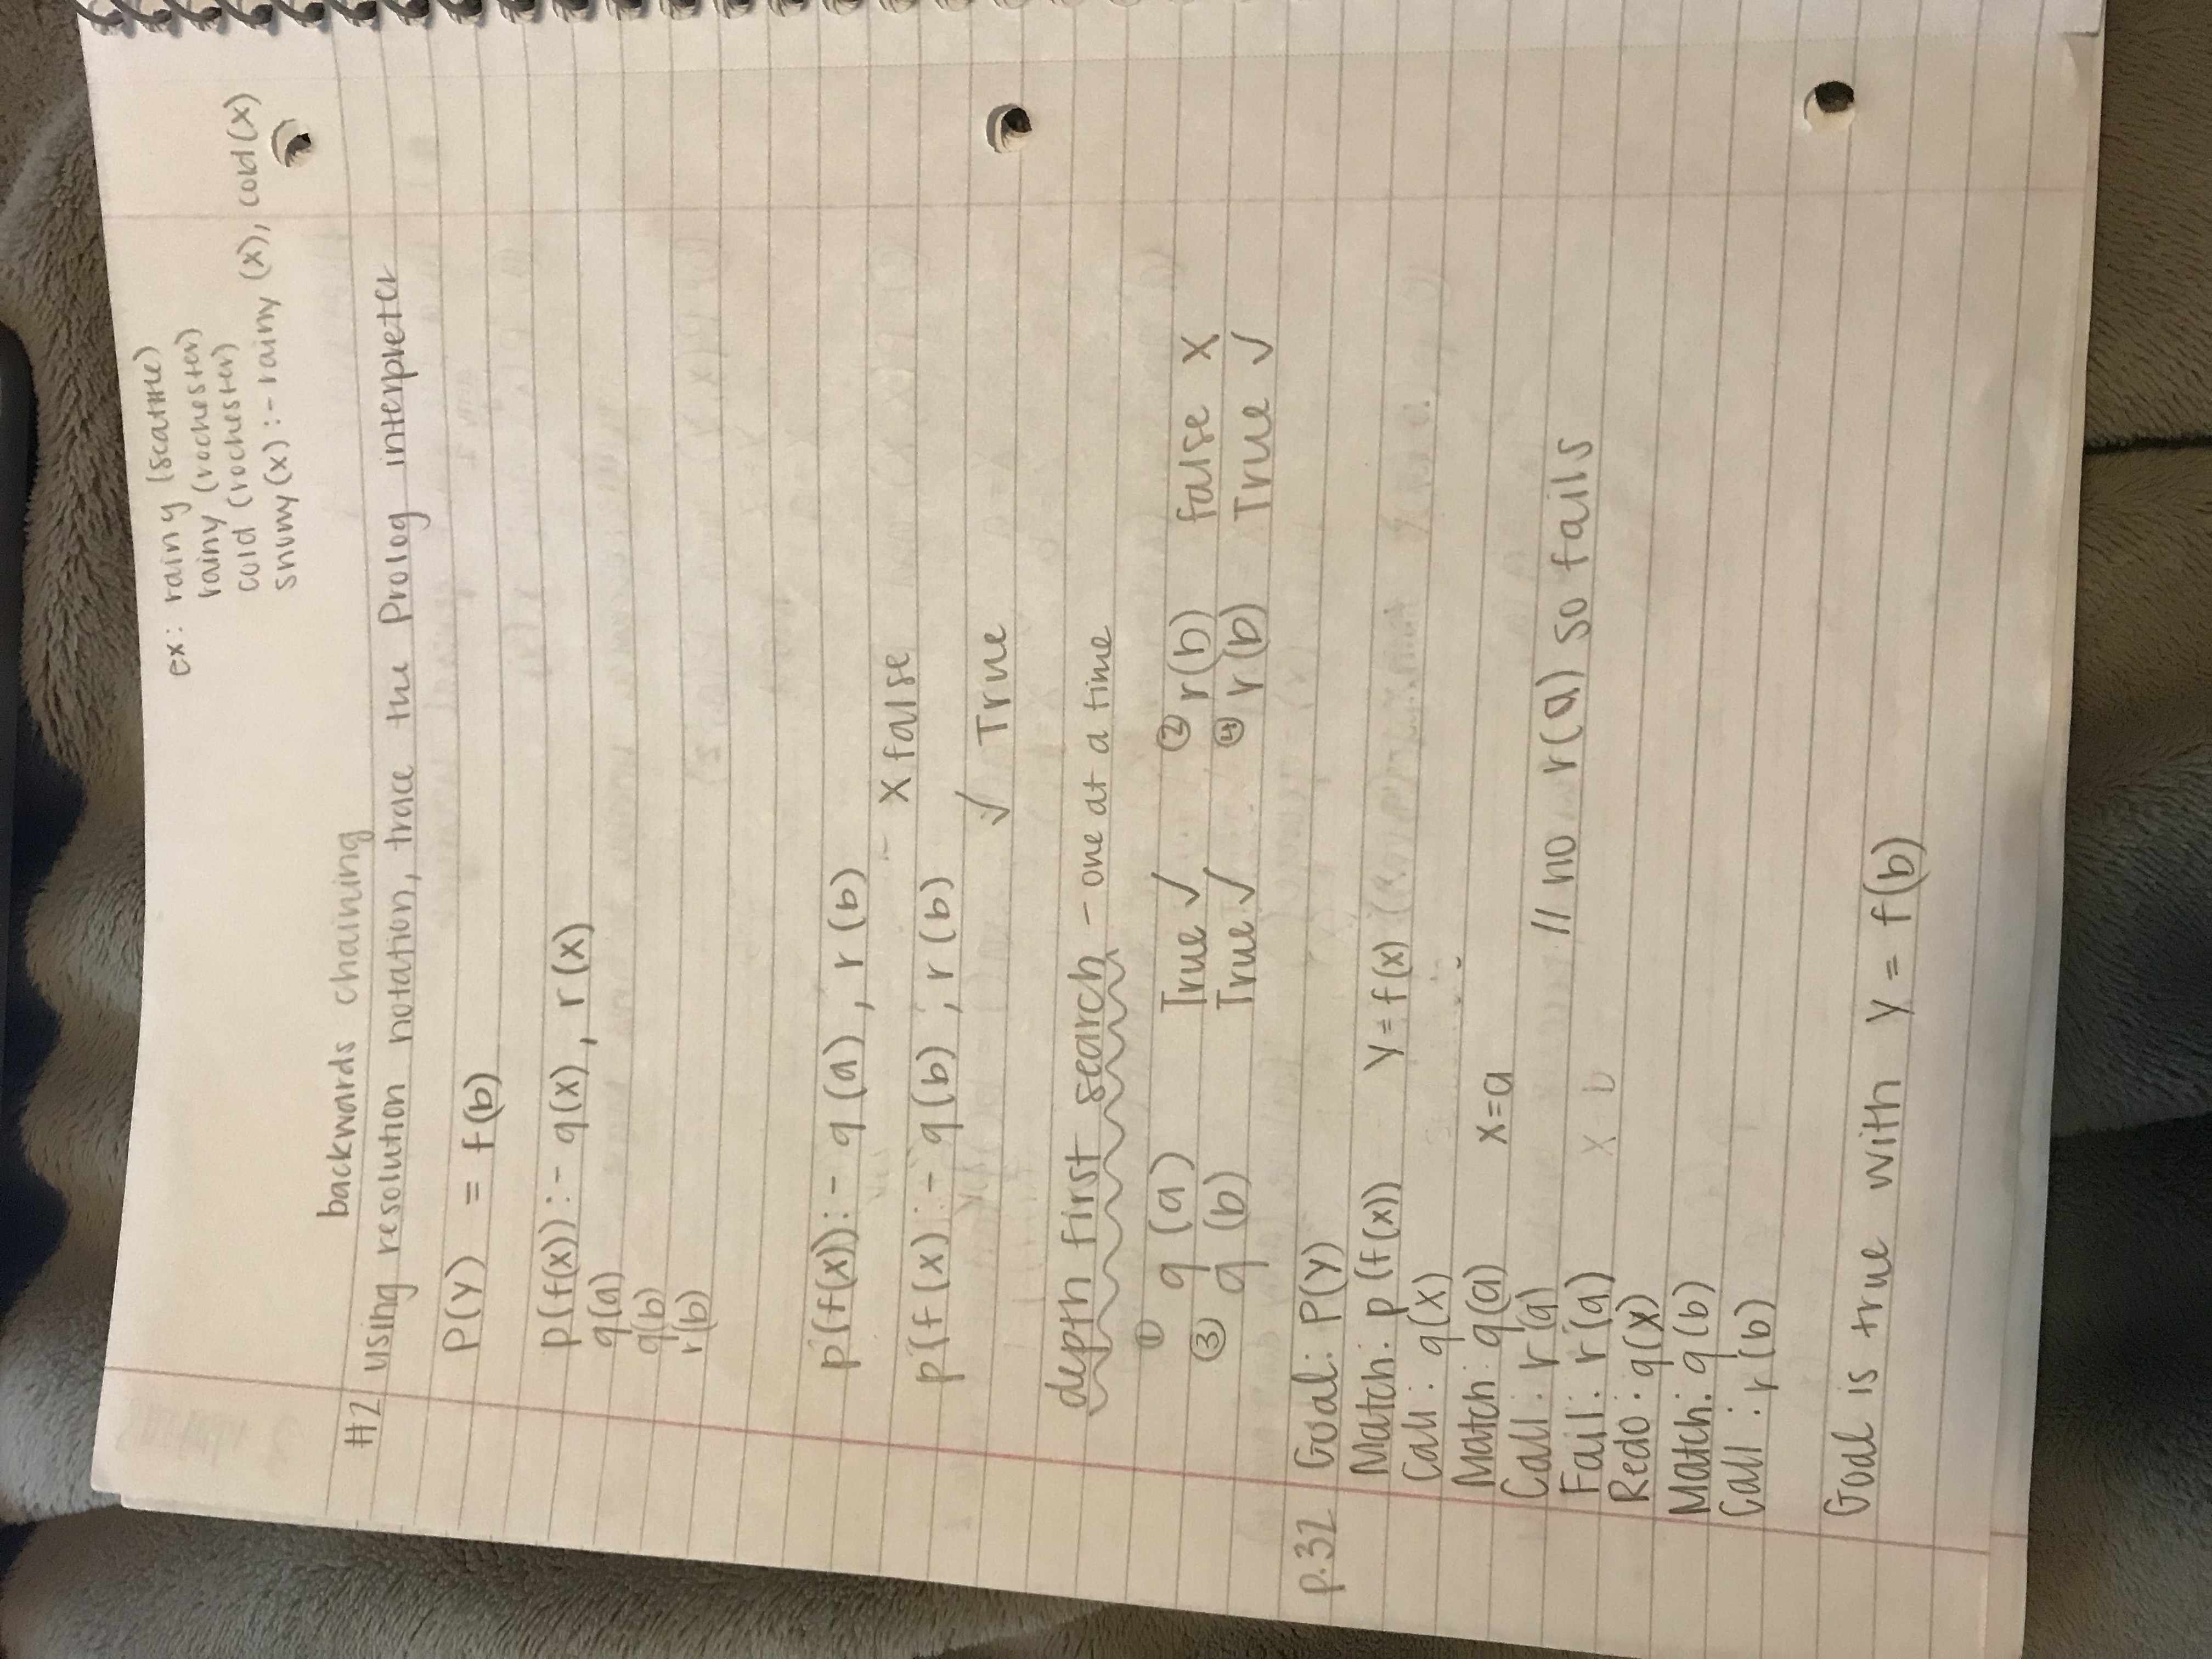 ex: rainy (seattle)
rainy (rochester)
cold (rochester)
snowy(x) :- rainy (x), cold(x)
backwards chaining
#2 using resolution notation, trace the Prolog interpreter
P(Y) = f(b)
p(f(x)) :- q(x), r(x)
q(a)
q(b)
r(b)
p(f(x)) :- q(a), r(b)
X false
p(f(x) :- q(b), r(b)
✓ True
depth first search - one at a time
① q(a) True ✓ ② r(b) false X
③ q(b) True ✓ ④ r(b) True ✓
p.32 Goal: P(Y)
Match: p(f(x)) Y = f(x)
Call: q(x)
Match: q(a) x=a
Call: r(a) // no r(a) so fails
Fail: r(a) X b
Redo: q(x)
Match: q(b)
Call: r(b)
Goal is true with Y = f(b)